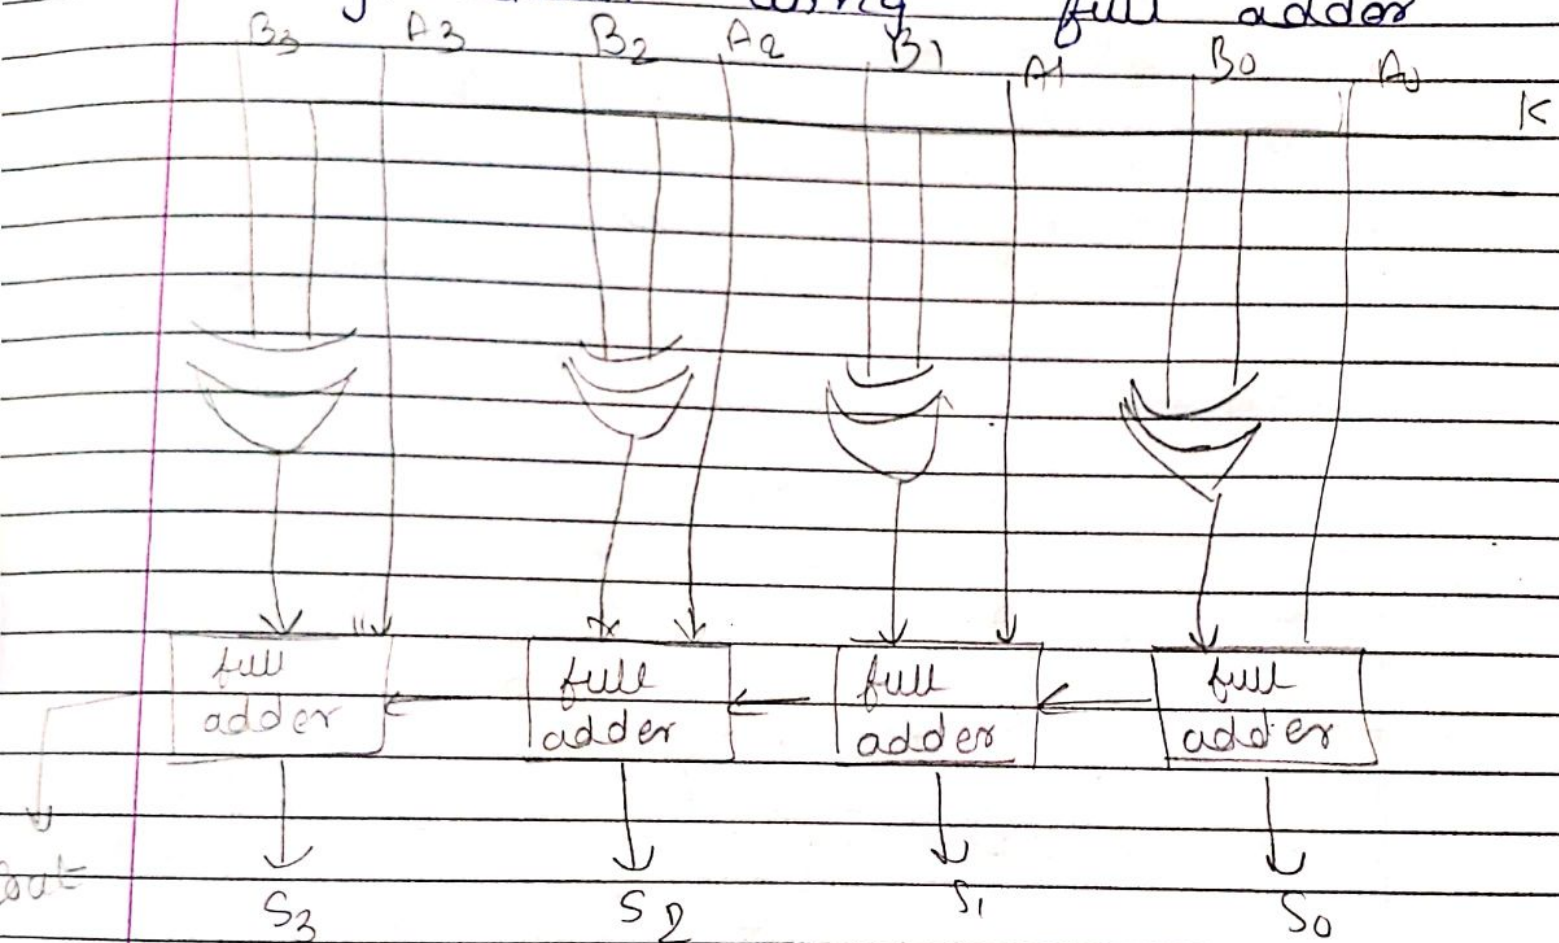 using full adder
B3 A3 B2 A2 B1 A1 B0 A0
K
full adder full adder full adder full adder
S3 S2 S1 S0